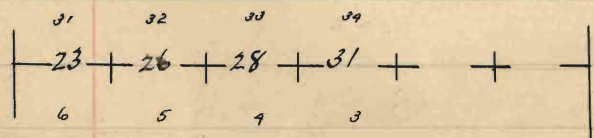 31 32 33 34
23 26 28 31
6 5 4 3